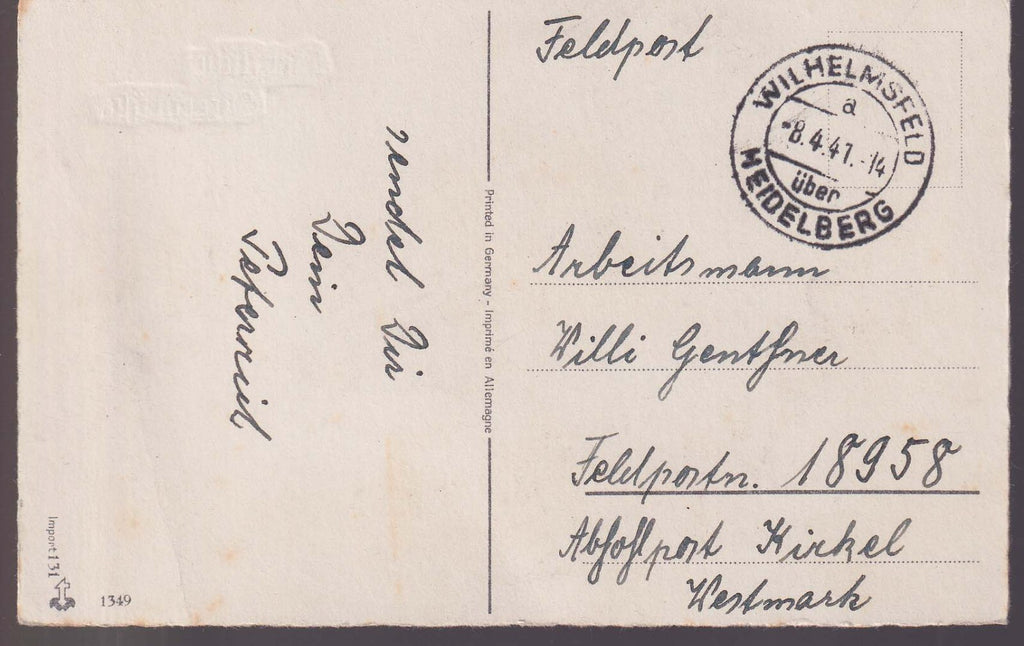 Feldpost
WILHELMSFELD
a
-8.4.41.-14
über
HEIDELBERG
sendet Dir
Dein
Printed in Germany - Imprimé en Allemagne
Arbeitsmann
Willi Genthner
Feldpostn. 18958
Abholpost Kirkel
Westmark
Import 131
1349